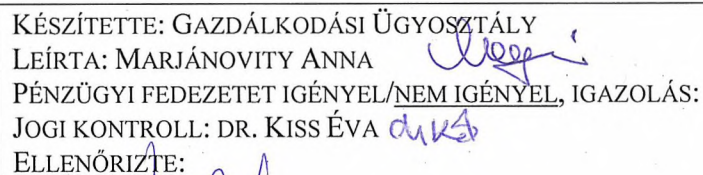 KÉSZÍTETTE: GAZDÁLKODÁSI ÜGYOSZTÁLY
LEÍRTA: MARJÁNOVITY ANNA
PÉNZÜGYI FEDEZETET IGÉNYEL/NEM IGÉNYEL, IGAZOLÁS:
JOGI KONTROLL: DR. KISS ÉVA
ELLENŐRIZTE: